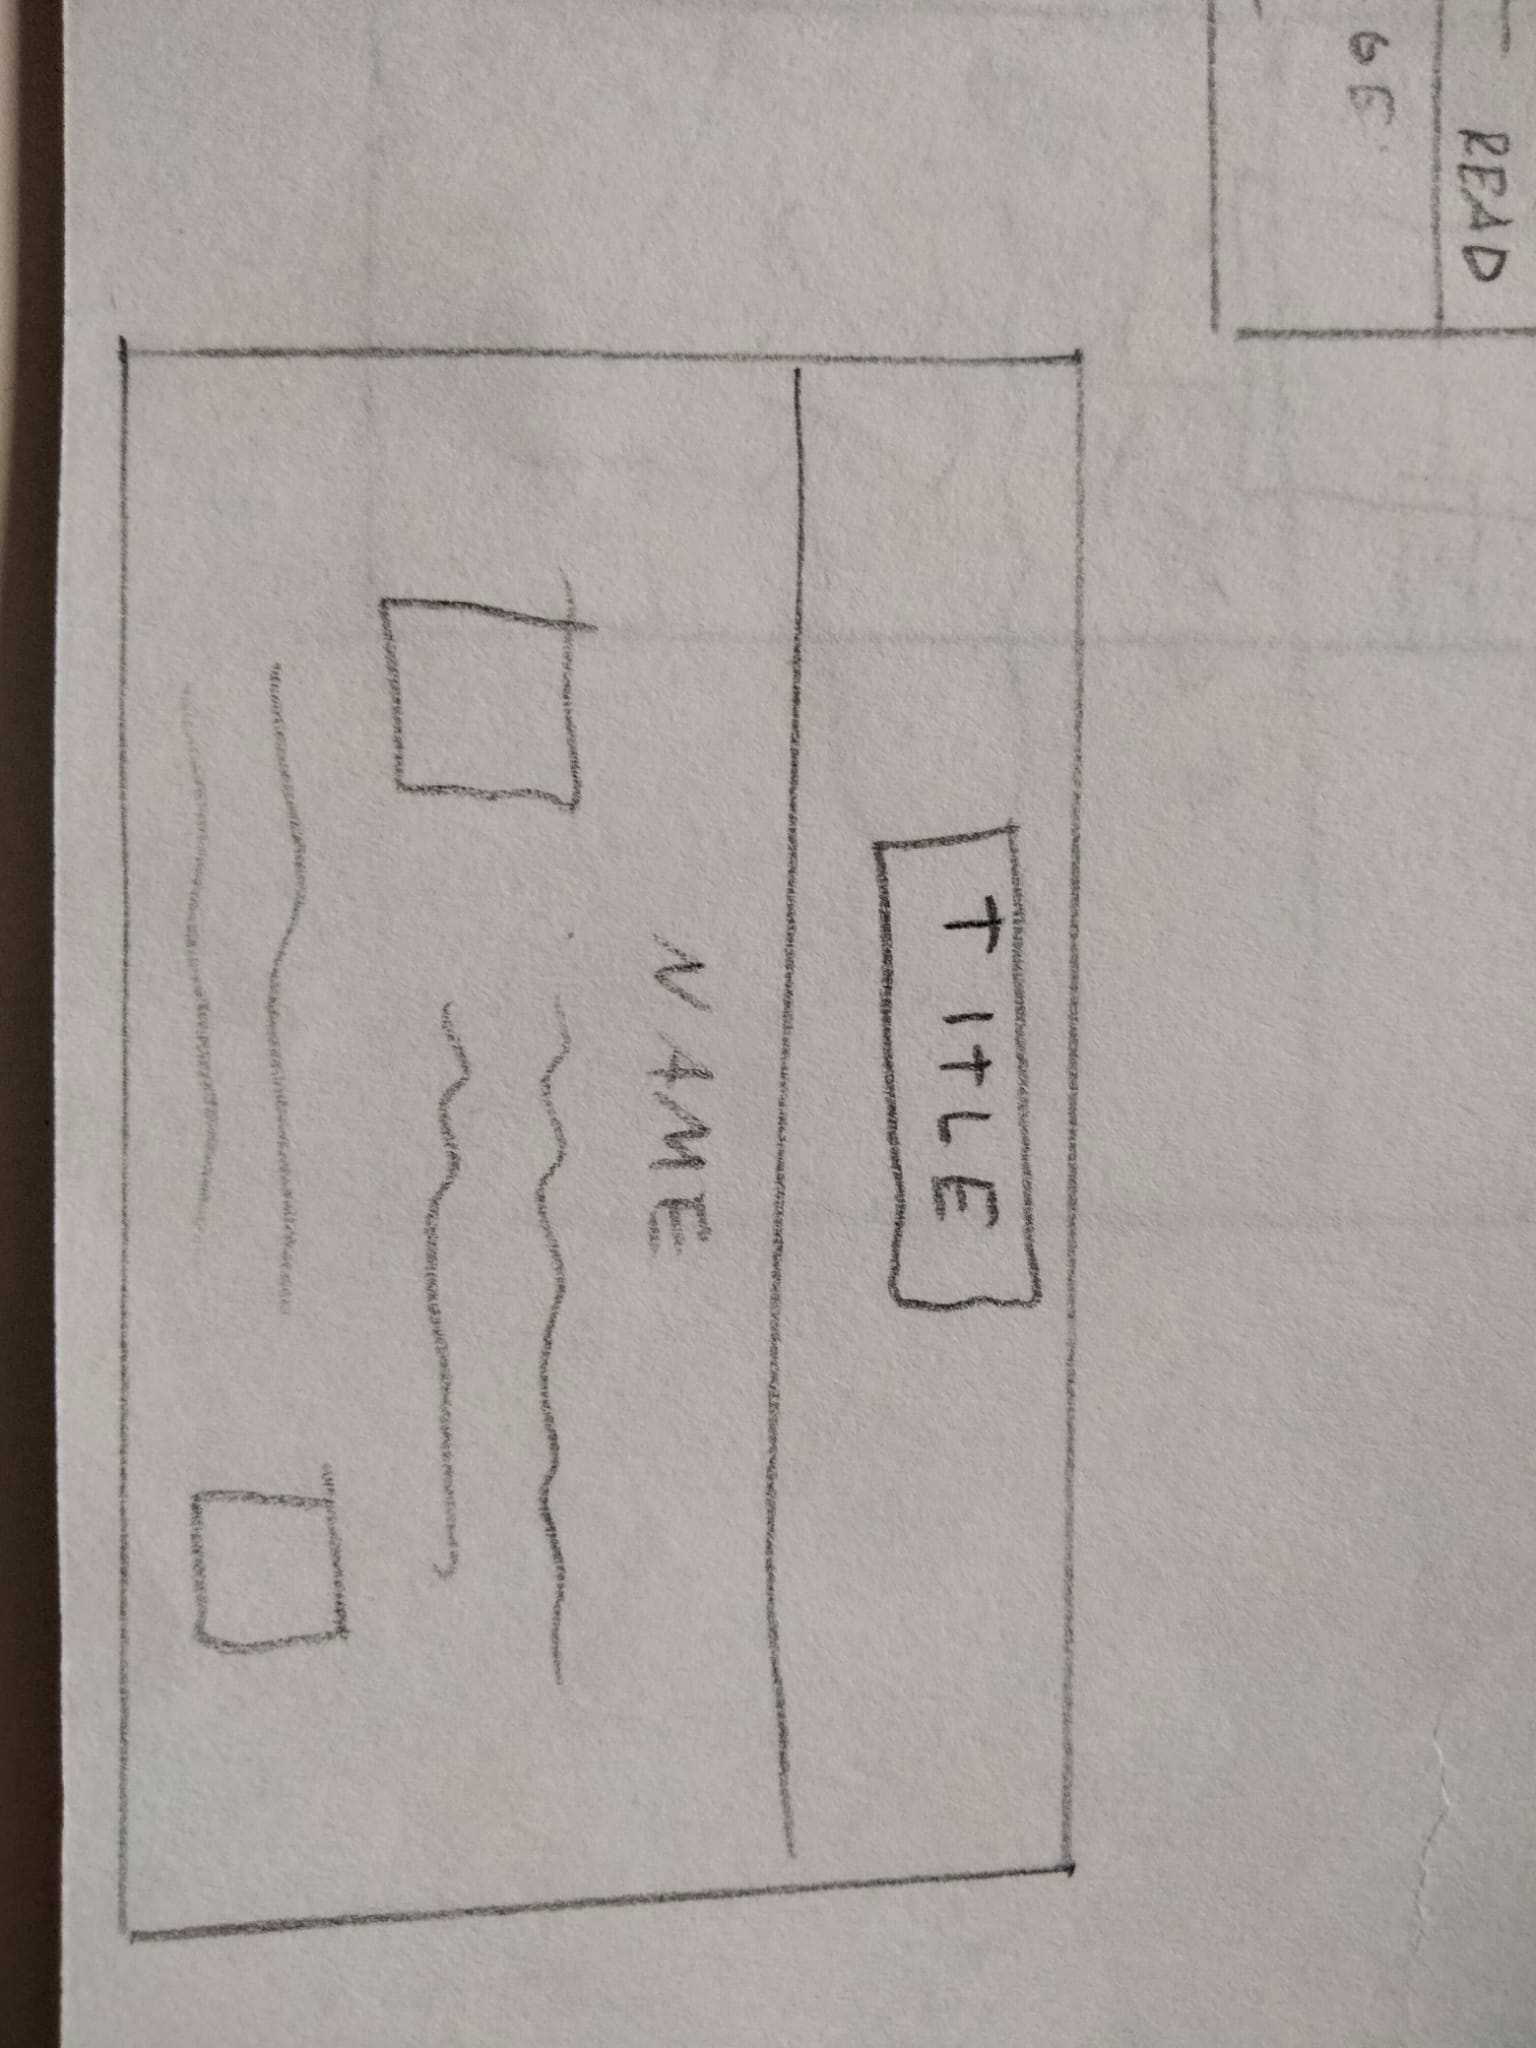 READ
TITLE
NAME